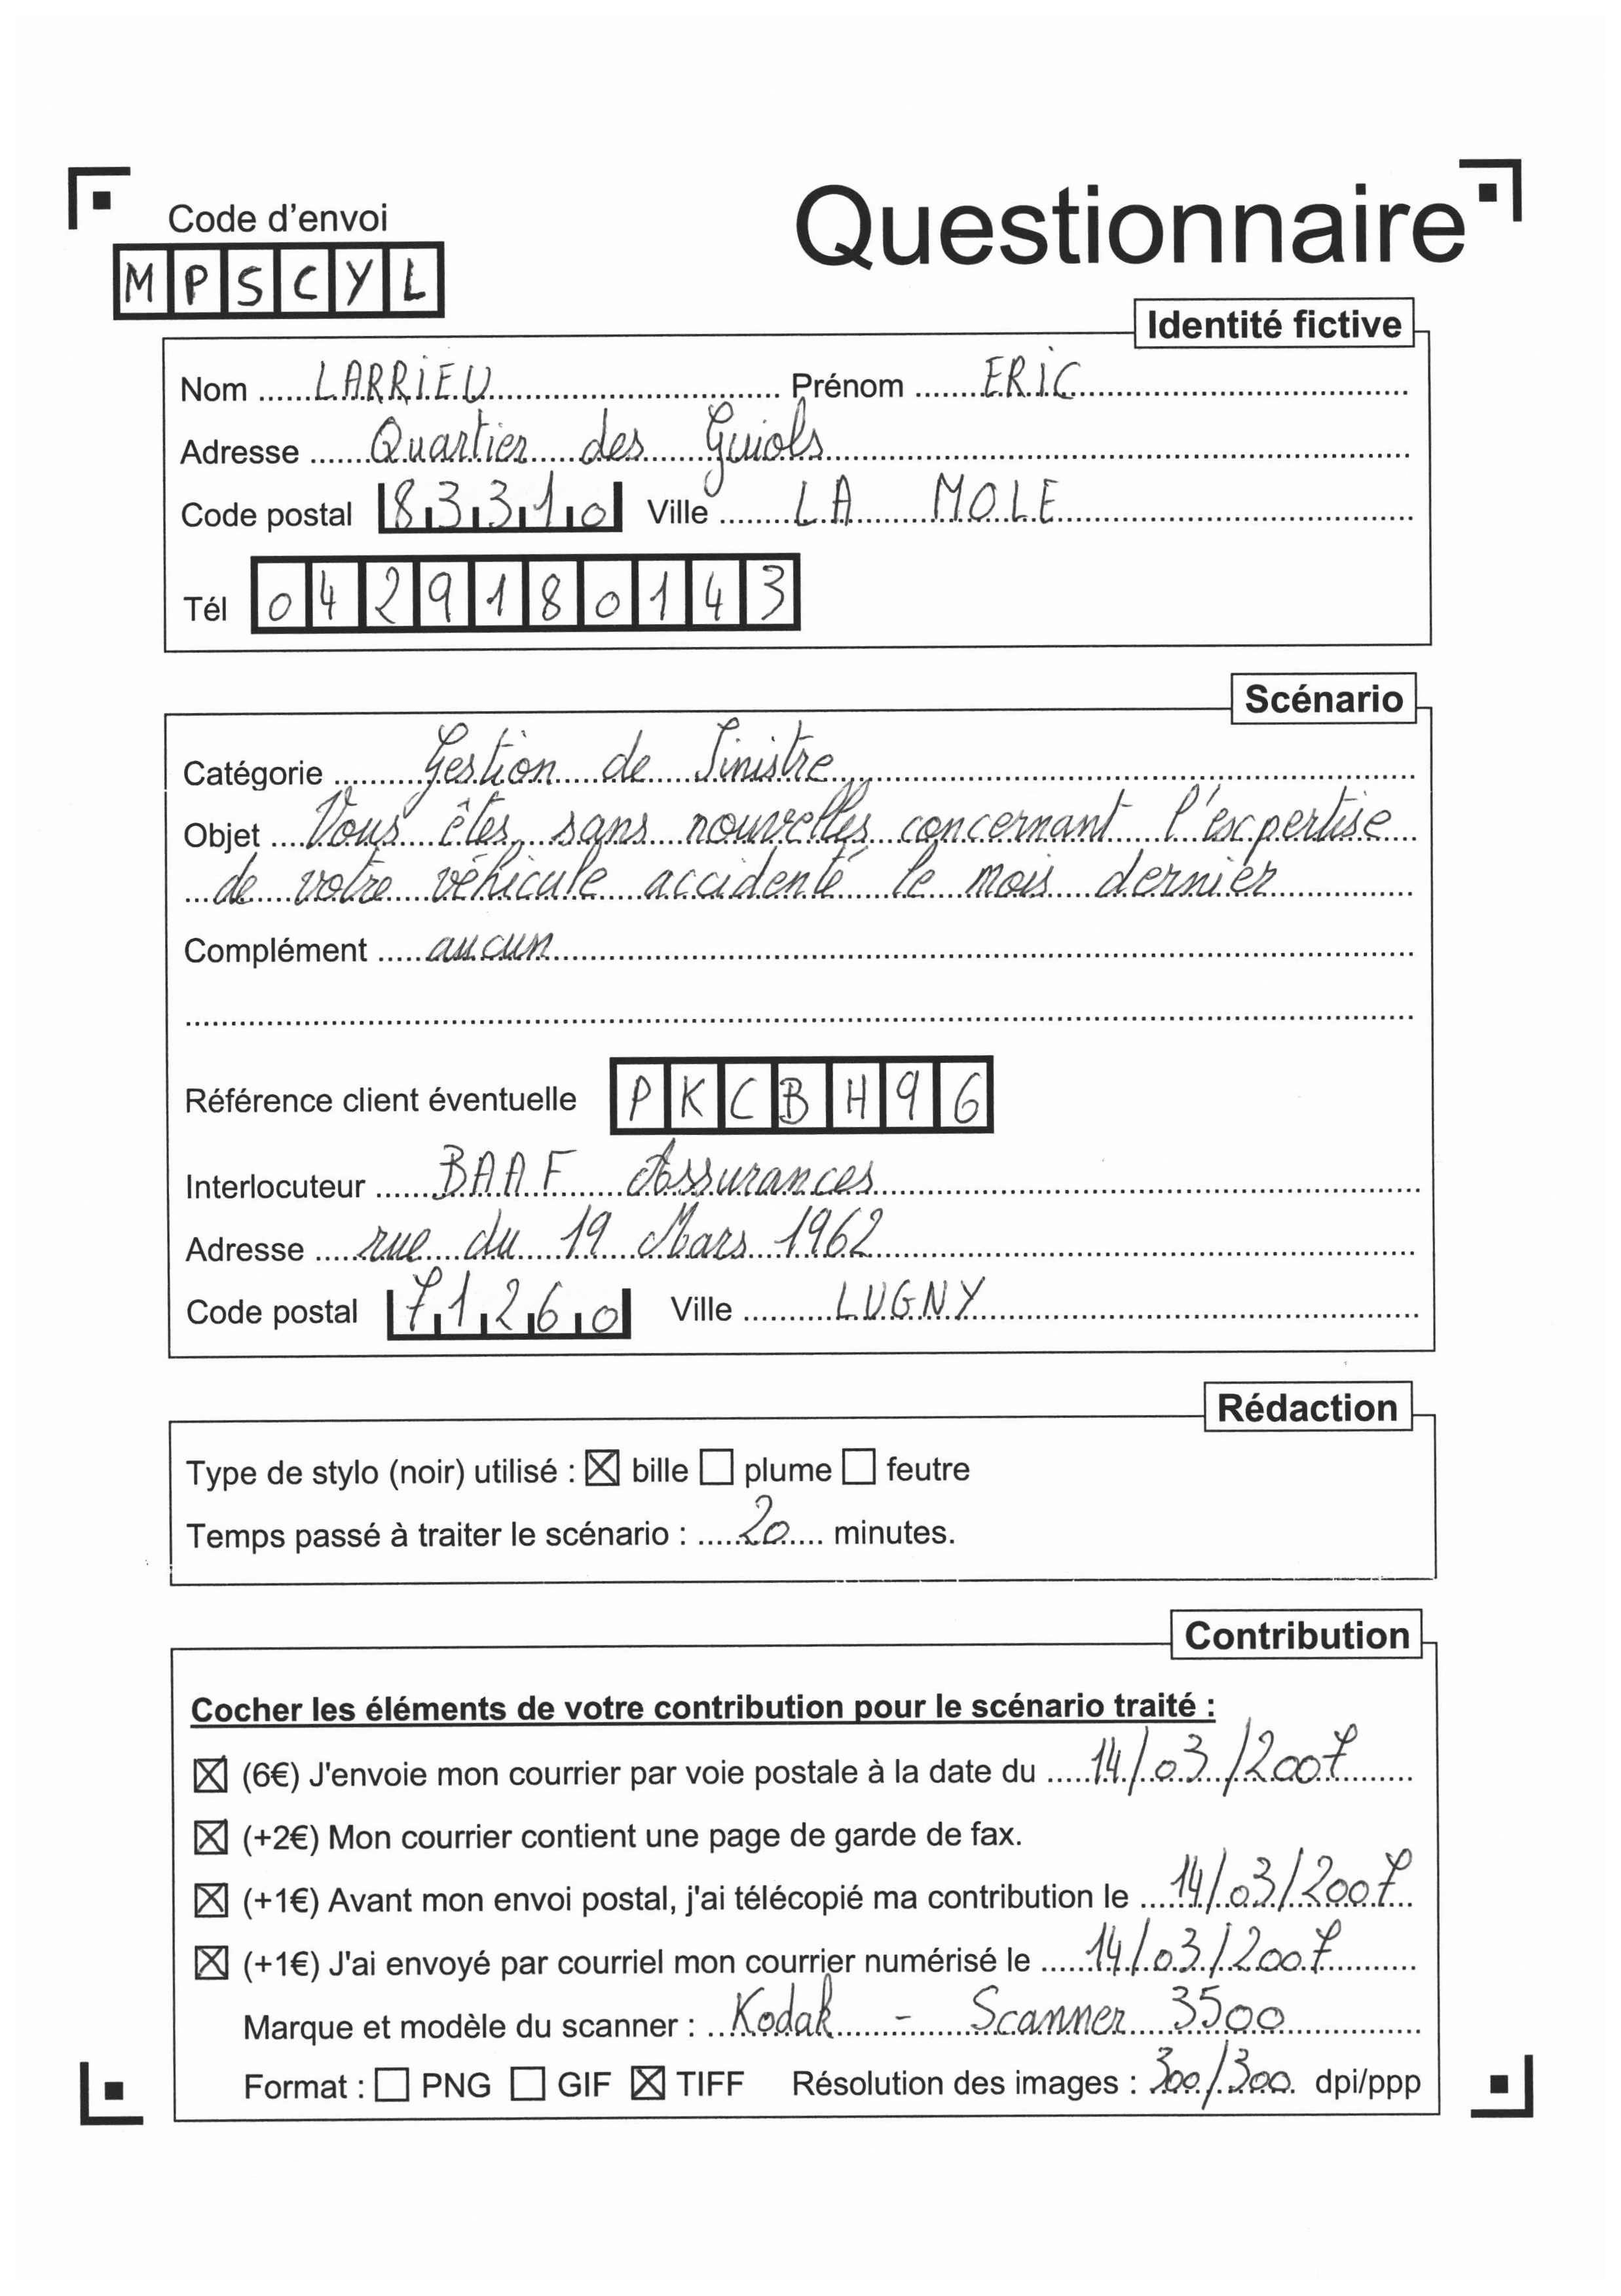 Code d'envoi
Questionnaire
MPSCYL
Identité fictive
Nom ...... LARRIEU ...... Prénom ...... ERIC
Adresse ...... Quartier des Guiols
Code postal 83310 Ville ...... LA MOLE
Tél 0429180143
Scénario
Catégorie ...... Gestion de Sinistre
Objet ...... Vous êtes sans nouvelles concernant l'expertise
de votre véhicule accidenté le mois dernier
Complément ...... aucun
Référence client éventuelle PKCBH96
Interlocuteur ...... BAAF Assurances
Adresse ...... rue du 19 Mars 1962
Code postal 71260 Ville ...... LUGNY
Rédaction
Type de stylo (noir) utilisé : ☒ bille ☐ plume ☐ feutre
Temps passé à traiter le scénario : ...... 20 ...... minutes.
Contribution
Cocher les éléments de votre contribution pour le scénario traité :
☒ (6€) J'envoie mon courrier par voie postale à la date du ...... 14/03/2007
☒ (+2€) Mon courrier contient une page de garde de fax.
☒ (+1€) Avant mon envoi postal, j'ai télécopié ma contribution le ...... 14/03/2007
☒ (+1€) J'ai envoyé par courriel mon courrier numérisé le ...... 14/03/2007
Marque et modèle du scanner : ...... Kodak - Scanner 3500
Format : ☐ PNG ☐ GIF ☒ TIFF Résolution des images : 300/300 dpi/ppp